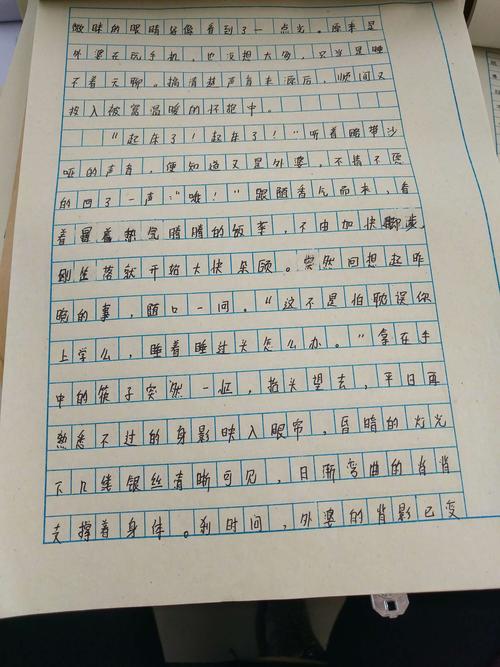 微眯的眼睛好像看到了一点光。原来是
外婆在玩手机，也没想太多，只当是睡
不着无聊。搞清楚声音来源后，瞬间又
投入被窝温暖的怀抱中。
“起床了！起床了！”听着略带沙
哑的声音，便知道又是外婆，不情不愿
的回了一声：“哦！”跟随香气而来，看
着冒着热气腾腾的饭菜，不由加快脚步，
刚坐落就开始大快朵颐。突然回想起昨
晚的事，随口一问。“这不是怕耽误你
上学么，睡着睡过头怎么办。”拿在手
中的筷子突然一怔，抬头望去，平日再
熟悉不过的身影映入眼帘，昏暗的灯光
下几缕银丝清晰可见，日渐弯曲的脊背
去撑着身体。刹时间，外婆的背影已变